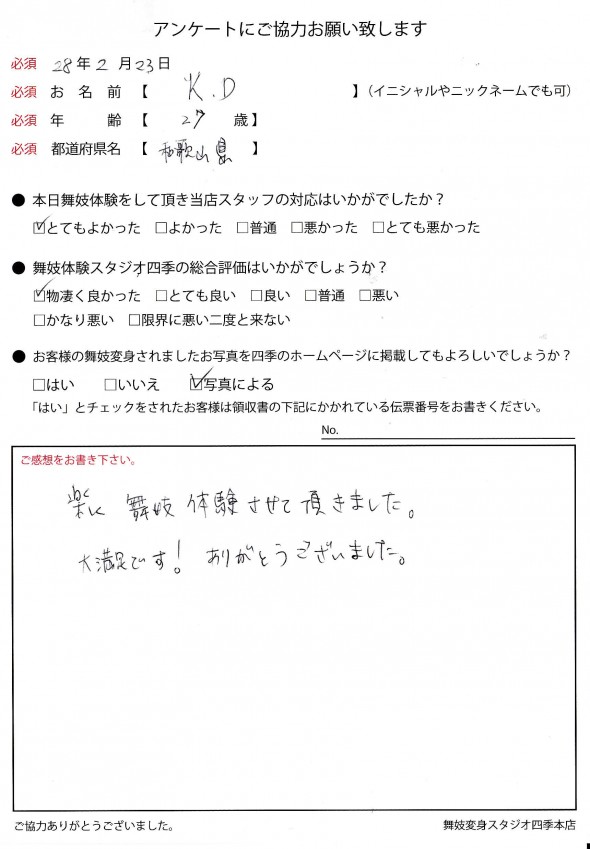 アンケートにご協力お願い致します
必須 28年2月23日
必須 お名前【 K.D 】（イニシャルやニックネームでも可）
必須 年齢【 27 歳】
必須 都道府県名【 和歌山県 】
● 本日舞妓体験をして頂き当店スタッフの対応はいかがでしたか？
☑とてもよかった □よかった □普通 □悪かった □とても悪かった
● 舞妓体験スタジオ四季の総合評価はいかがでしょうか？
☑物凄く良かった □とても良い □良い □普通 □悪い
□かなり悪い □限界に悪い二度と来ない
● お客様の舞妓変身されましたお写真を四季のホームページに掲載してもよろしいでしょうか？
□はい □いいえ ☑写真による
「はい」とチェックをされたお客様は領収書の下記にかかれている伝票番号をお書きください。
No.
ご感想をお書き下さい。
楽しく 舞妓 体験させて頂きました。
大満足です！ ありがとうございました。
ご協力ありがとうございました。
舞妓変身スタジオ四季本店